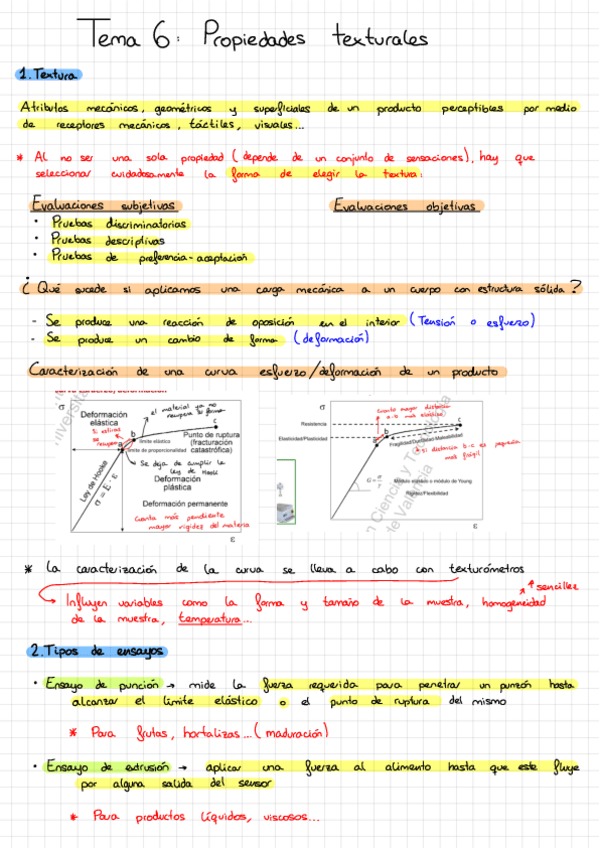 Tema 6: Propiedades texturales
1. Textura
Atributos mecánicos, geométricos y superficiales de un producto perceptibles por medio
de receptores mecánicos, táctiles, visuales...
* Al no ser una sola propiedad (depende de un conjunto de sensaciones), hay que
seleccionar cuidadosamente la forma de elegir la textura:
Evaluaciones subjetivas
Evaluaciones objetivas
• Pruebas discriminatorias
• Pruebas descriptivas
• Pruebas de preferencia-aceptación
¿Qué sucede si aplicamos una carga mecánica a un cuerpo con estructura sólida?
- Se produce una reacción de oposición en el interior (Tensión o esfuerzo)
- Se produce un cambio de forma (deformación)
Caracterización de una curva esfuerzo/deformación de un producto
σ
Deformación
elástica
Si estiras
se
recupera
el material ya no
recupera su forma
a
b
c
límite elástico
límite de proporcionalidad
Punto de ruptura
(fracturación
catastrófica)
Se deja de cumplir la
ley de Hooke
Ley de Hooke
σ = E · ε
Deformación
plástica
Deformación permanente
Cuanta más pendiente
mayor rigidez del material
ε
σ
Cuanto mayor distancia
a-b más elástico
Resistencia
Elasticidad/Plasticidad
b
c
Fragilidad/Ductilidad Maleabilidad
si distancia b-c es pequeña
más frágil
Módulo elástico o módulo de Young
Rigidez/Flexibilidad
ε
n Ciencia y Tecnología
de Valencia
* La caracterización de la curva se lleva a cabo con texturómetros
↑ sencillez
Influyen variables como la forma y tamaño de la muestra, homogeneidad
de la muestra, temperatura...
2. Tipos de ensayos
• Ensayo de punción → mide la fuerza requerida para penetrar un punzón hasta
alcanzar el límite elástico o el punto de ruptura del mismo
* Para frutas, hortalizas...(maduración)
• Ensayo de extrusión → aplicar una fuerza al alimento hasta que este fluye
por alguna salida del sensor
* Para productos líquidos, viscosos...